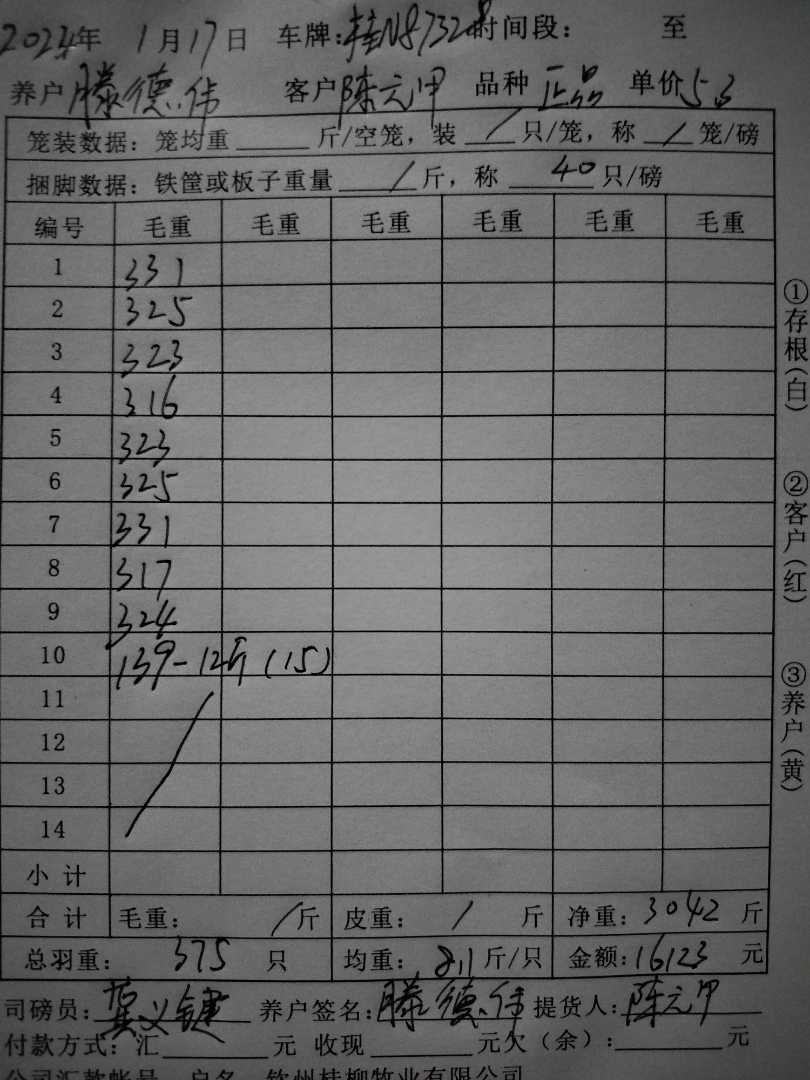 2024年 1月17日 车牌:桂N8732 时间段: 至
养户 滕德伟 客户 陈元甲 品种 正品 单价 5.3
笼装数据: 笼均重 斤/空笼, 装 / 只/笼, 称 / 笼/磅
捆脚数据: 铁筐或板子重量 / 斤, 称 40 只/磅
编号 毛重 毛重 毛重 毛重 毛重 毛重
1 331
2 325
3 323
4 316
5 323
6 325
7 331
8 317
9 324
10 139-12斤(15)
11
12
13
14
小计
合计 毛重: / 斤 皮重: / 斤 净重: 3042 斤
总羽重: 375 只 均重: 8.11 斤/只 金额: 16123 元
司磅员: 义键 养户签名: 滕德伟 提货人: 陈元甲
付款方式: 汇 元 收现 元欠(余): 元
公司汇款帐号 户名 钦州桂柳牧业有限公司
①存根(白)
②客户(红)
③养户(黄)